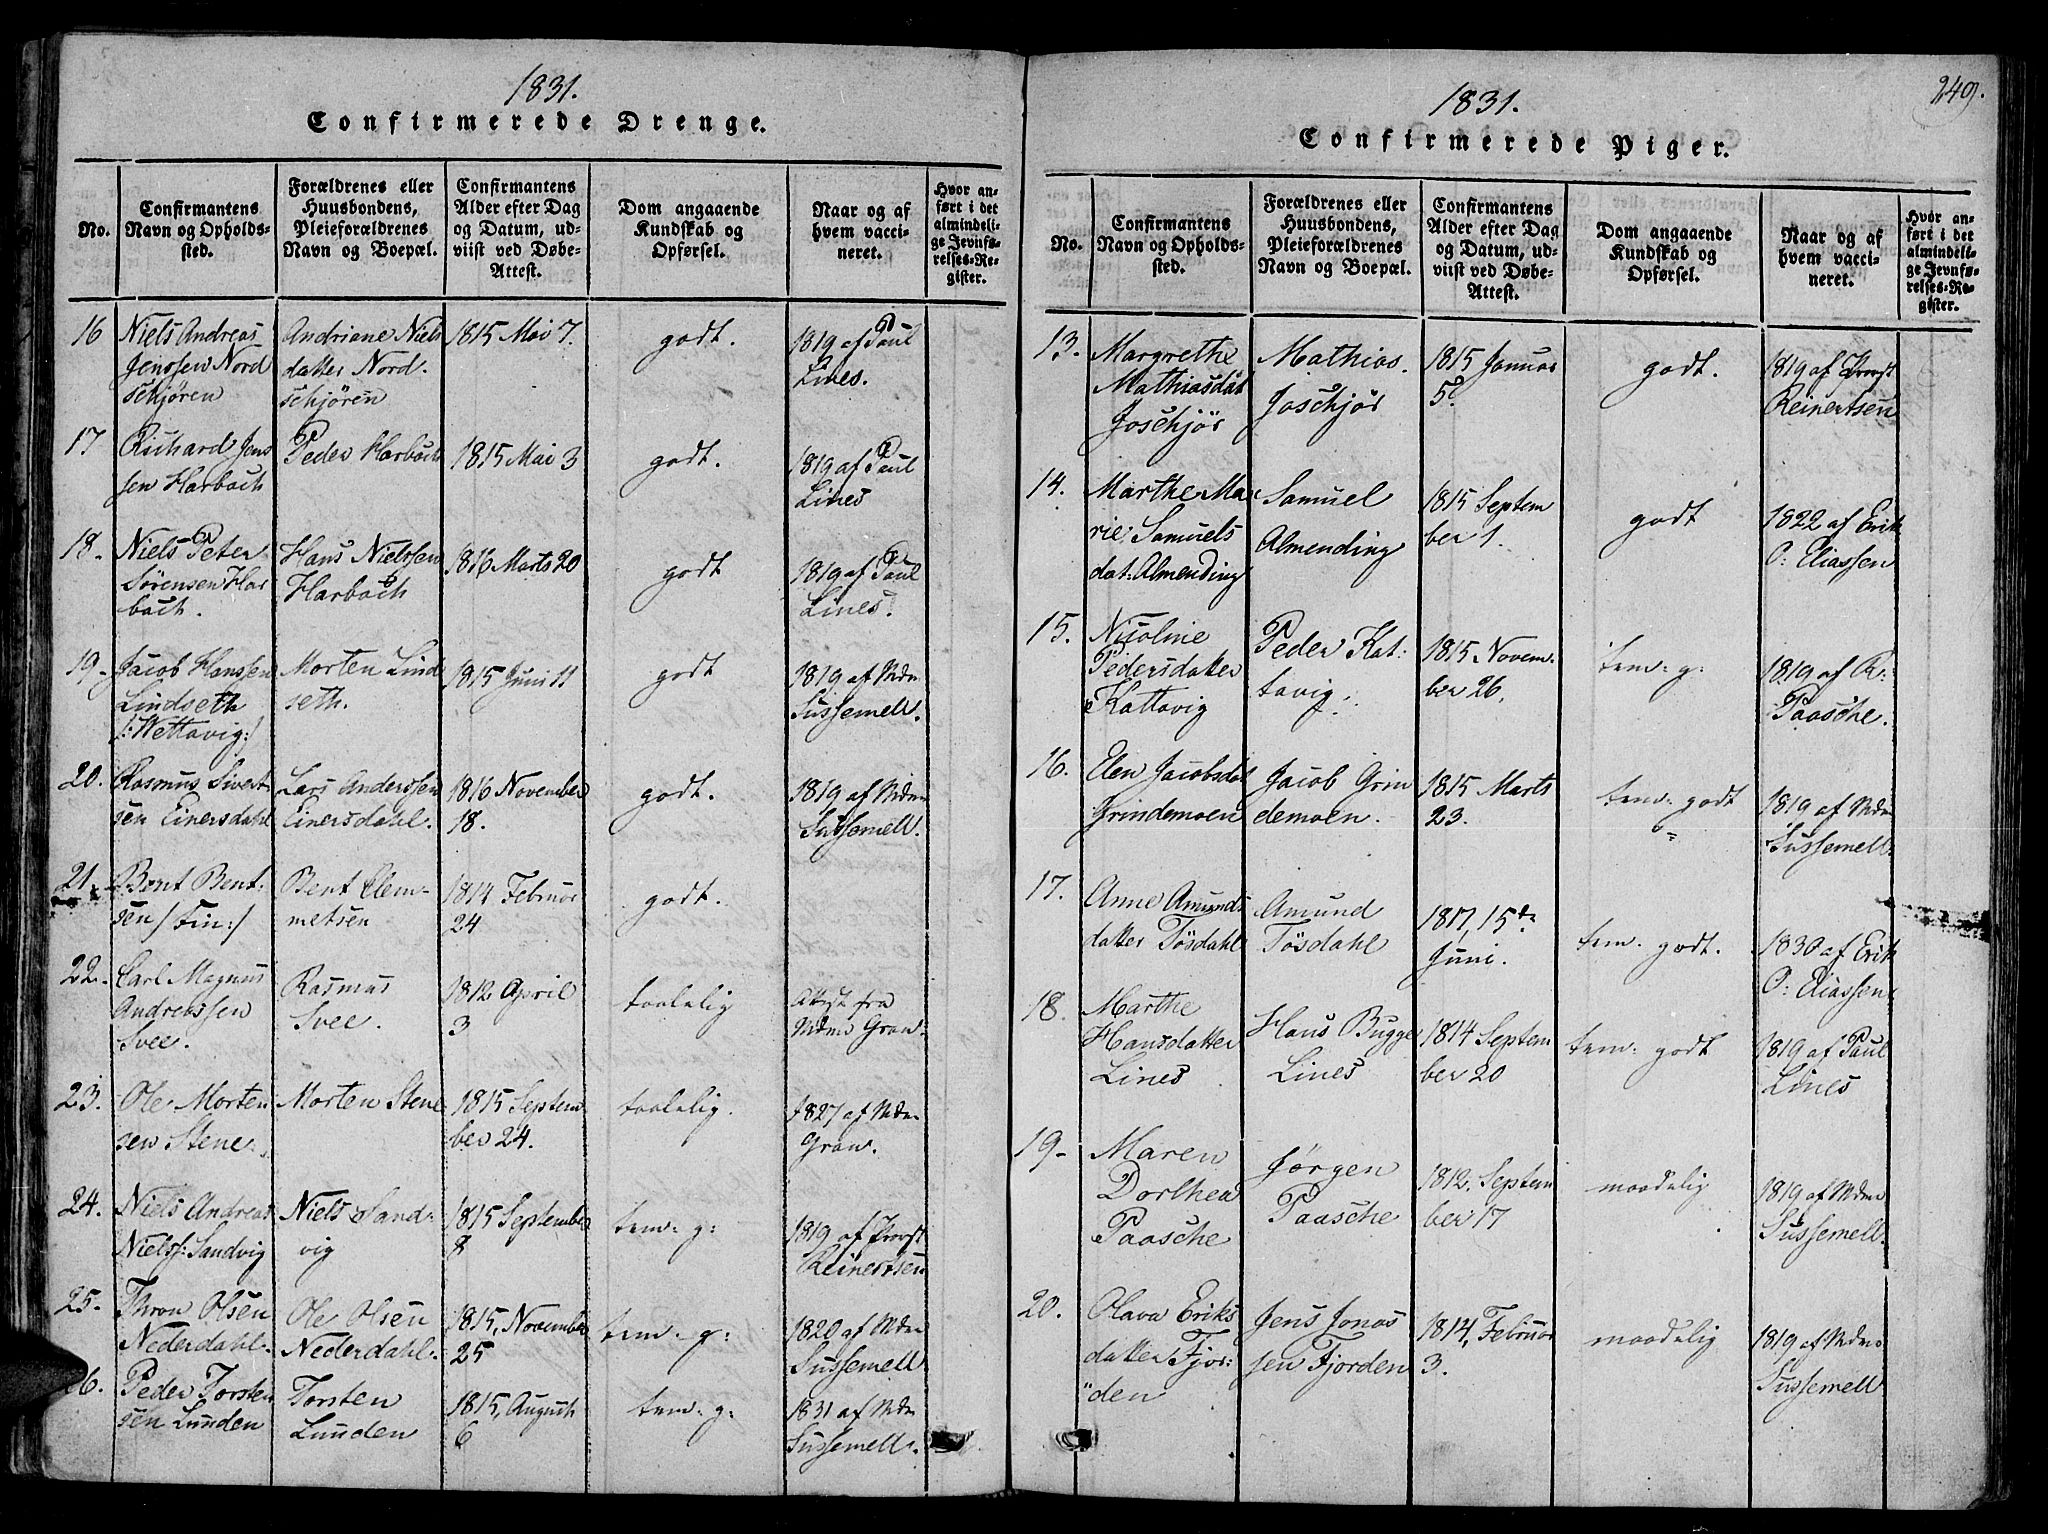 1831.
Confirmerede Drenge.
No.
Confirmantens
Navn og Opholds-
sted.
Forældrenes eller
Huusbondens,
Pleieforældrenes
Navn og Boepæl.
Confirmantens
Alder efter Dag
og Datum, ud-
viist ved Døbe-
Attest.
Dom angaaende
Kundskab og
Opførsel.
Naar og af
hvem vacci-
neret.
Hvor an-
ført i det
almindeli-
ge Jevnfø-
relses-Re-
gister.
16
Niels Andreas
Jenssen Nord
schjören
Andriane Niels
datter Nord.
schjören
1815 Mai 7.
godt.
1819 af Paul
Lines.
17
Richard Jens
sen Harbach
Peder Harbach
1815 Mai 3
godt.
1819 af Paul
Lines
18.
Niels Peter
Sörensen Har
bach.
Hans Nielssen
Harbach
1816 Marts 20
godt
1819 af Paul
Lines.
19.
Jacob Hanssen
Lindseth
/:Wettavig:/
Morten Lind
seth.
1815 Juni 11
godt
1819 af Mdm
Sussemell.
20.
Rasmus Sivert
sen Einersdahl
Lars Anderssen
Einersdahl.
1816 November
18.
godt.
1819 af Mdm
Sussemell.
21.
Bent Bent:
sen /Fin:/
Bent Clem-
metsen
1814 Februar
24
godt.
22.
Carl Magnus
Andreassen
Svee.
Rasmus
Svee.
1812 April
3
taalelig
Attest fra
Mdm Gran.
23.
Ole Morten
sen Stene.
Morten Stene
1815 Septem
ber 24.
taalelig.
1827 af Mdm
Gran.
24.
Niels Andreas
Nielss: Sandvig
Niels Sand-
vig
1815 September
8
tem: g:
1819 af Provst
Reinertsen
25.
Thron Olsen
Nederdahl.
Ole Olsen
Nederdahl.
1815, November
25
tem: g:
1820 af Mdm
Sussemell
26.
Peder Torsten
sen Lunden
Torsten
Lunden
1815, August
6
tem: g:
1831 af Mdm
Sussemell.
249.
1831.
Confirmerede Piger.
No.
Confirmantens
Navn og Opholds-
sted.
Forældrenes eller
Huusbondens,
Pleieforældrenes
Navn og Boepæl.
Confirmantens
Alder efter Dag
og Datum, ud-
viist ved Døbe-
Attest.
Dom angaaende
Kundskab og
Opførsel.
Naar og af
hvem vacci-
neret.
Hvor an-
ført i det
almindeli-
ge Jevnfø-
relses-Re-
gister.
13.
Margrethe
Mathiasdat
Joschjör
Mathias.
Joschjör
1815 Januar
5.
godt.
1819 af Provst
Reinertsen
14.
Marthe Ma
rie Samuels
dat: Almending
Samuel
Almending
1815 Septem
ber 1.
godt
1822 af Erik
O: Eliassen
15.
Nicoline
Pedersdatter
Kattavig
Peder Kat:
tavig.
1815 Novem-
ber 26.
tem: g:
1819 af R:
Paasche.
16.
Elen Jacobsdat
Grindemoen
Jacob Grin
demoen.
1815 Marts
23.
tem: godt
1819 af Mdm
Sussemell.
17.
Anne Amunds
datter Tösdahl
Amund
Tösdahl
1817, 15de
Juni.
tem: godt.
1830 af Erik
O: Eliassen
18.
Marthe
Hansdatter
Lines
Hans Bugge
Lines
1814 Septem
ber 20
tem: godt
1819 af Paul
Lines
19.
Maren
Dorthea
Paasche
Jörgen
Paasche
1812, Septem
ber 17
maadelig
1819 af Mdm
Sussemell.
20.
Olava Eriks
datter Fjor:
den
Jens Jonas
sen Fjorden
1814, Februar
3.
maadelig
1819 af Mdm
Sussemell